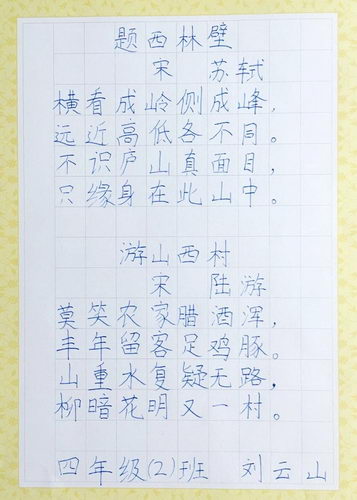 题西林壁
宋 苏轼
横看成岭侧成峰，
远近高低各不同。
不识庐山真面目，
只缘身在此山中。
游山西村
宋 陆游
莫笑农家腊酒浑，
丰年留客足鸡豚。
山重水复疑无路，
柳暗花明又一村。
四年级(2)班 刘云山